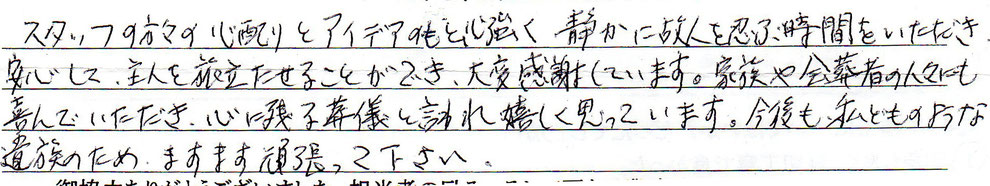 スタッフの方々の心配りとアイデアのもと心強く 静かに故人を忍ぶ時間をいただき
安心して、主人を旅立たせることができ、大変感謝しています。家族や会葬者の人々にも
喜んでいただき、心に残る葬儀と言われ嬉しく思っています。今後も、私どものような
遺族のため、ますます頑張って下さい。